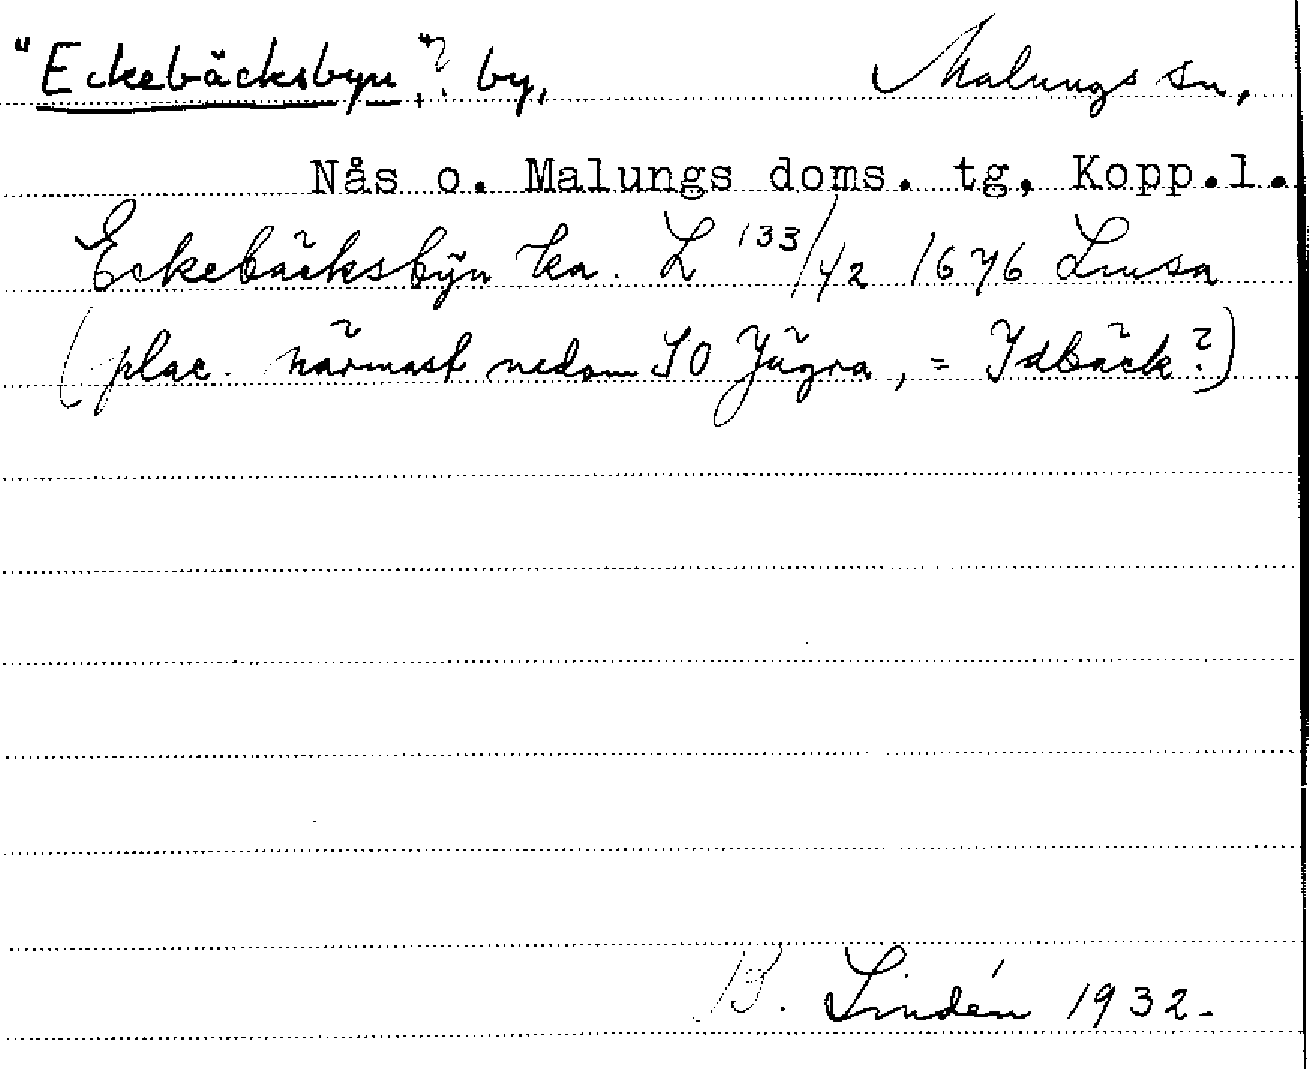 "Eckebäcksbyn"? by, Malungs sn,
Nås o. Malungs doms. tg, Kopp.l.
Eckebäcksbÿn ka. L 133/42 1676 Lmsa
(plac. närmast nedom SO Jägra, = Idbäck?)
B. Lindén 1932.